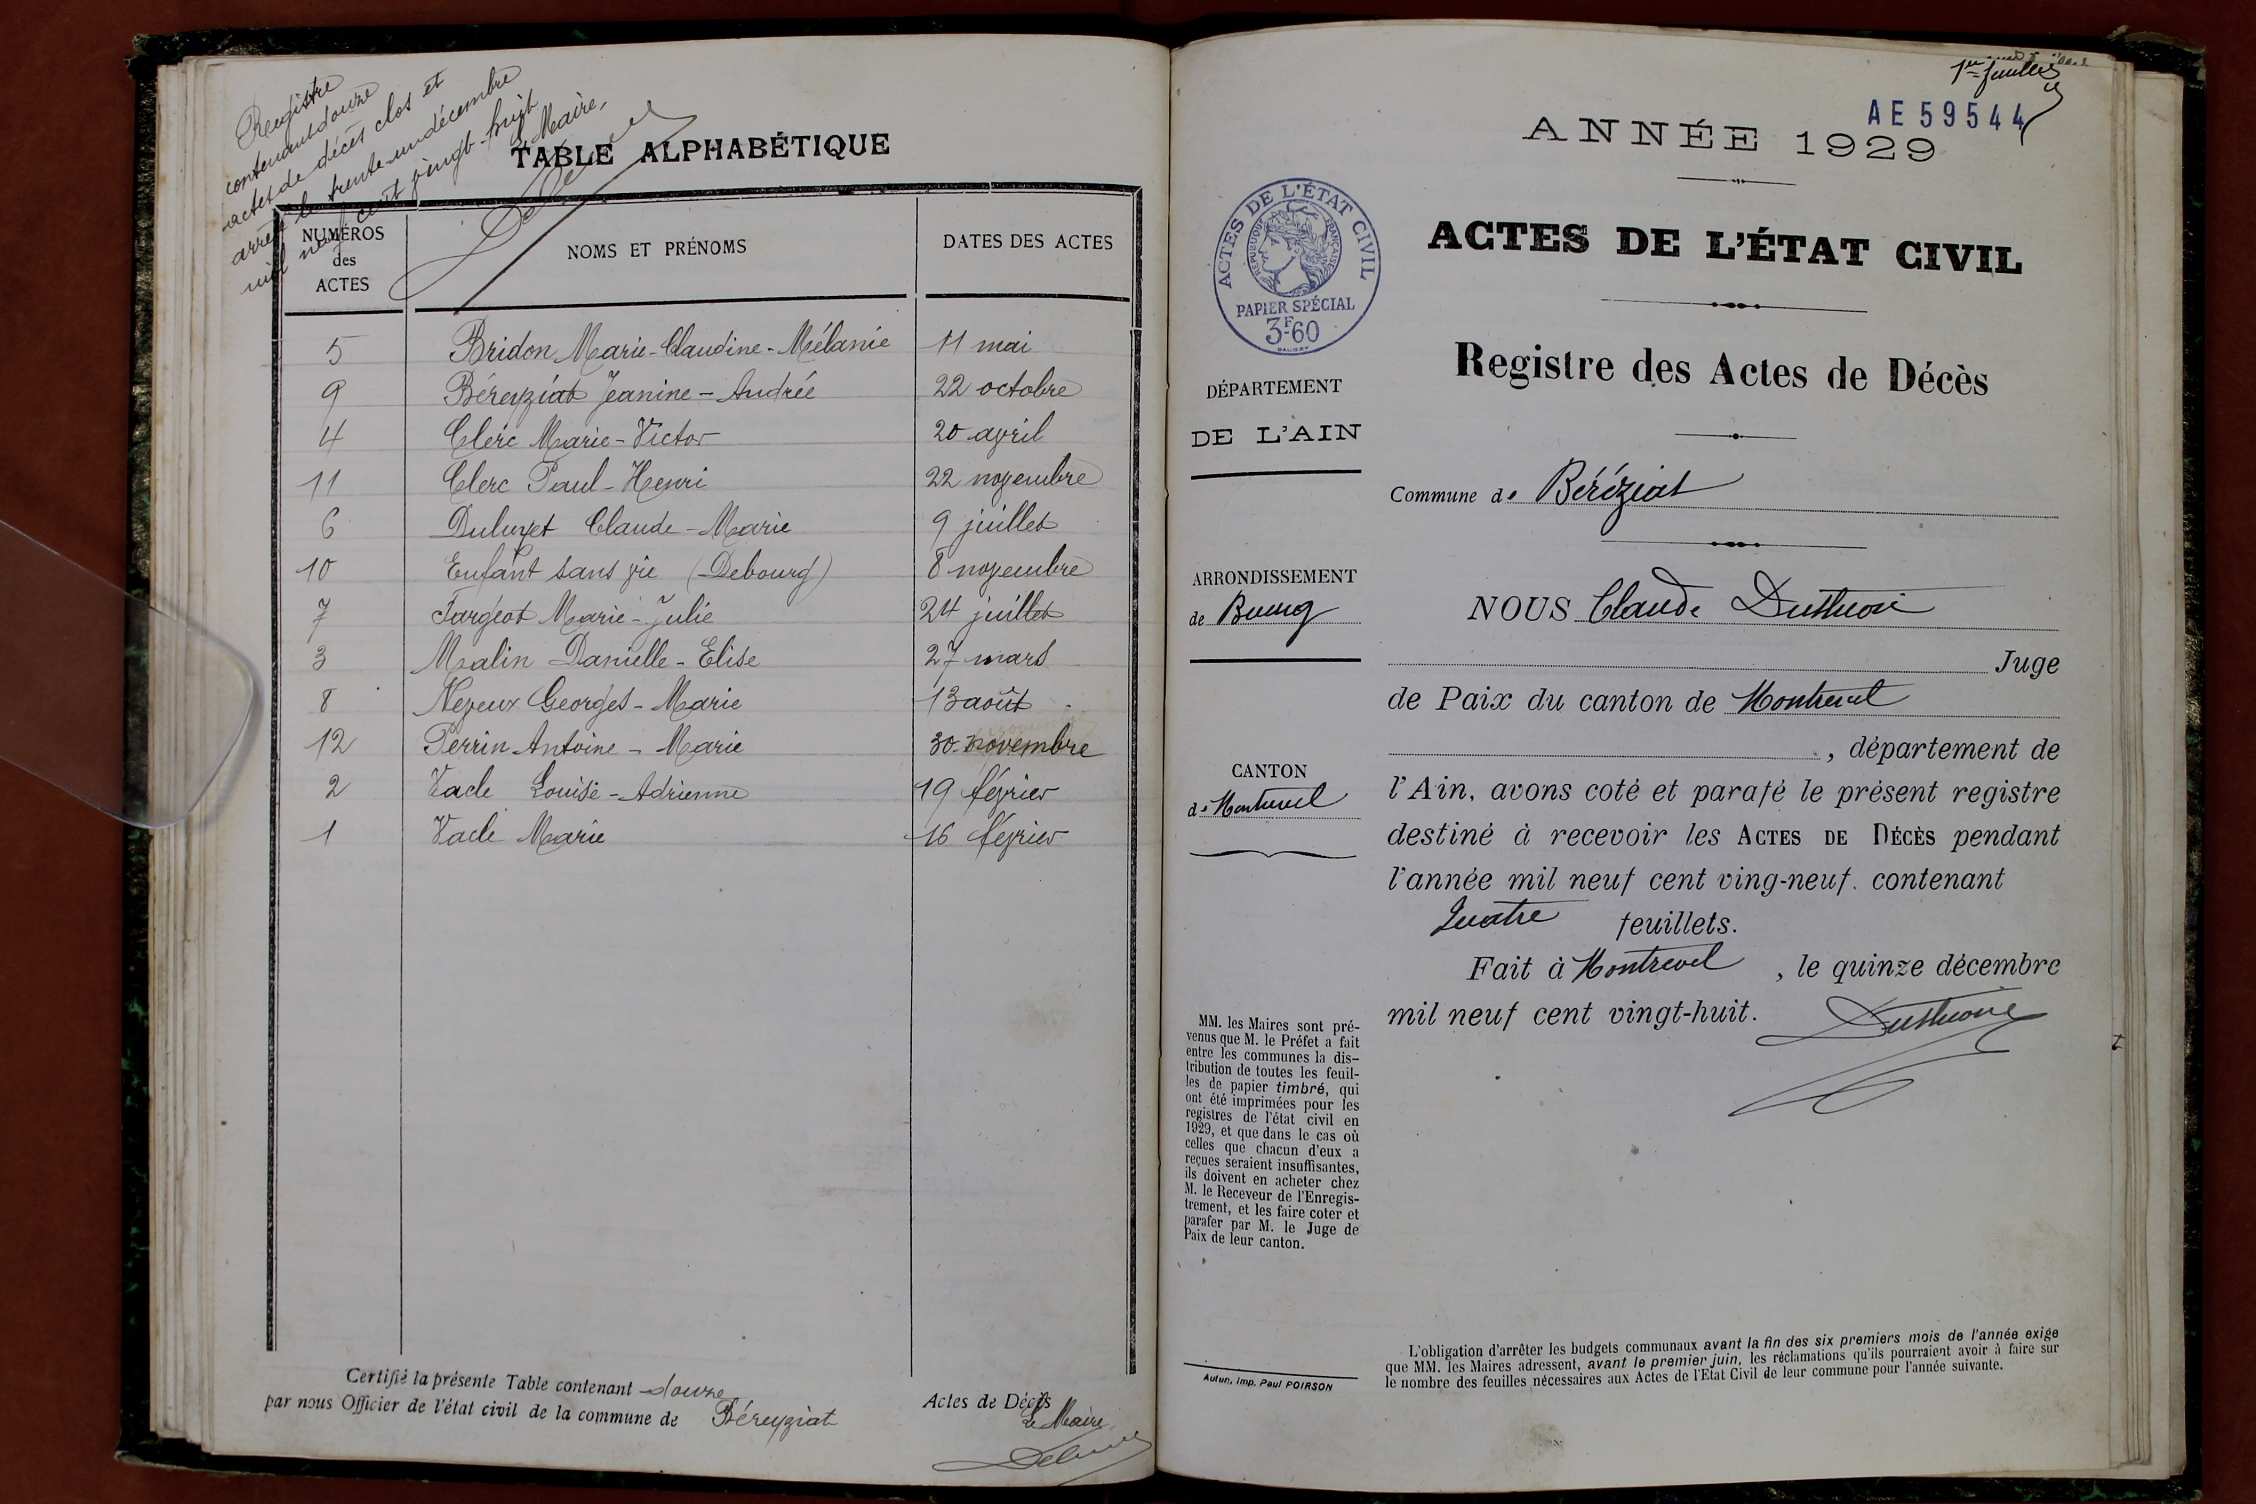 Registre
contenant douze
actes de décès clos et
arrêté le trente-un décembre
mil neuf cent vingt-huit
le Maire,
TABLE ALPHABÉTIQUE
NUMÉROS des ACTES NOMS ET PRÉNOMS DATES DES ACTES
5 Bridon Marie-Claudine-Mélanie 11 mai
9 Béreyziat Jeanine-Andrée 22 octobre
4 Clerc Marie-Victor 20 avril
11 Clerc Paul-Henri 22 novembre
6 Duluyet Claude-Marie 9 juillet
10 Enfant sans vie (Debourg) 8 novembre
7 Fargeot Marie-Julie 24 juillet
3 Malin Danielle-Elise 27 mars
8 Neveux Georges-Marie 13 août
12 Perrin Antoine-Marie 30 novembre
2 Vacle Louise-Adrienne 19 février
1 Vacle Marie 16 février
Certifié la présente Table contenant douze Actes de Décès
par nous Officier de l'état civil de la commune de Béreyziat
le Maire
1er feuillet
AE59544
ANNÉE 1929
ACTES DE L'ÉTAT CIVIL
RÉPUBLIQUE FRANÇAISE
PAPIER SPÉCIAL
3F60
ACTES DE L'ÉTAT CIVIL
Registre des Actes de Décès
DÉPARTEMENT
DE L'AIN
Commune de Béréziat
ARRONDISSEMENT
de Bourg
CANTON
de Montrevel
NOUS Claude Duthion
Juge
de Paix du canton de Montrevel
, département de
l'Ain, avons coté et parafé le présent registre
destiné à recevoir les ACTES DE DÉCÈS pendant
l'année mil neuf cent ving-neuf. contenant
Quatre feuillets.
Fait à Montrevel , le quinze décembre
mil neuf cent vingt-huit.
MM. les Maires sont pré-
venus que M. le Préfet a fait
entre les communes la dis-
tribution de toutes les feuil-
les de papier timbré, qui
ont été imprimées pour les
registres de l'état civil en
1929, et que dans le cas où
celles que chacun d'eux a
reçues seraient insuffisantes,
ils doivent en acheter chez
M. le Receveur de l'Enregis-
trement, et les faire coter et
parafer par M. le Juge de
Paix de leur canton.
Autun, Imp. Paul POIRSON
L'obligation d'arrêter les budgets communaux avant la fin des six premiers mois de l'année exige
que MM. les Maires adressent, avant le premier juin, les réclamations qu'ils pourraient avoir à faire sur
le nombre des feuilles nécessaires aux Actes de l'Etat Civil de leur commune pour l'année suivante.